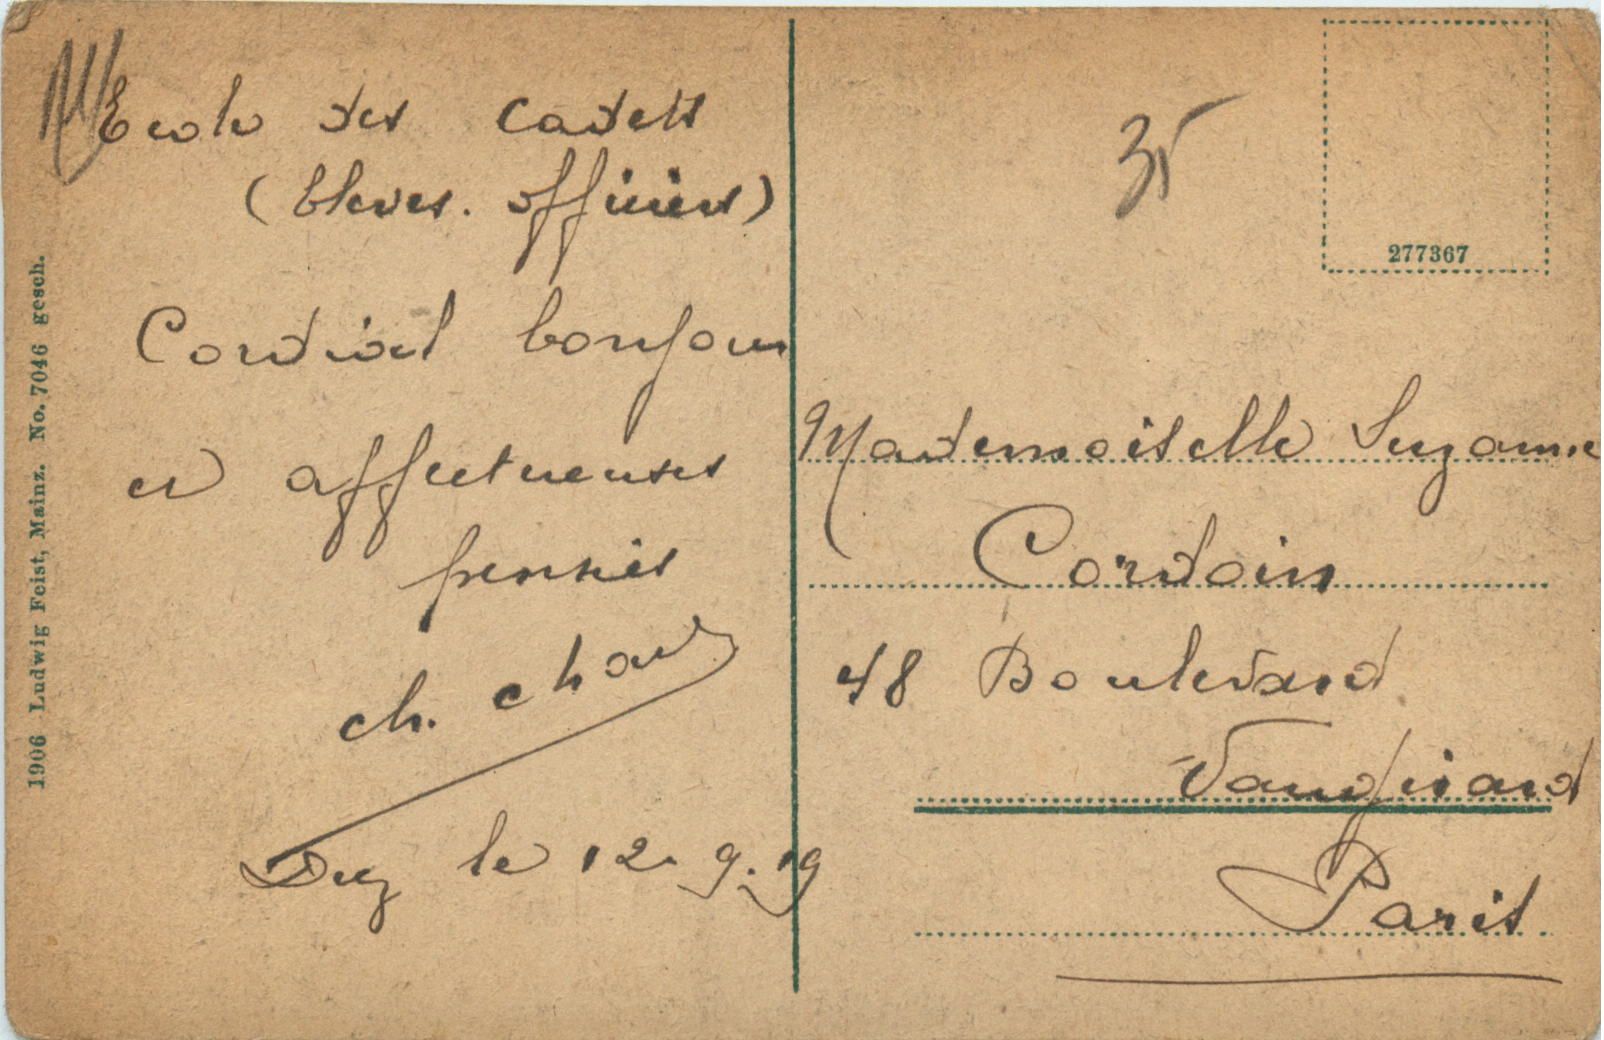 Ecole des cadets
(Eleves. officiers)
Cordial bonjour
et affectueuses
pensées
ch. chau
Diez le 12. 9. 19
1906 Ludwig Feist, Mainz. No. 7046 gesch.
35
277367
Mademoiselle Suzanne
Cordoin
48 Boulevard
Vaugirard
Paris